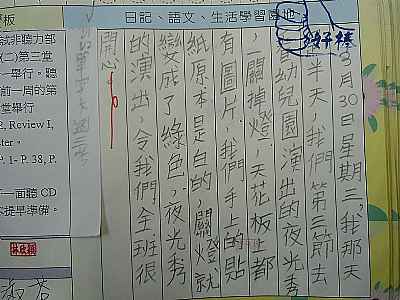 板
日記、語文、生活學習園地
好棒
3月30日星期三,我那天
上半天,我們第三節去
看幼兒園演出的夜光秀
,一關掉燈,天花板上都
有圖片,我們手上的貼
紙原本是白的,關燈就
變成了綠色,夜光秀
的演出,令我們全班很
開心。
試非聽力部
(二)第三堂
一舉行。聽
前一周的第
堂舉行
P. Review I,
P. 1- P. 38, P.
一面聽 CD
來提早準備。